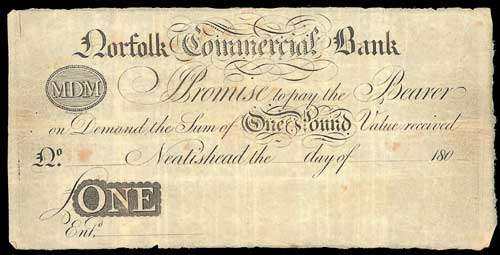 Norfolk Commercial Bank
MDM
I Promise to pay the Bearer
on Demand the Sum of One Pound Value received
No. Neatishead the day of 180
£ ONE
Entd.